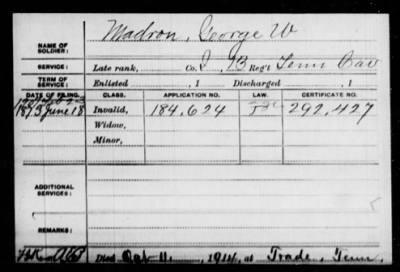 NAME OF SOLDIER: Madron, George W
SERVICE: Late rank, Co. I, 13 Reg't Tenn Cav
TERM OF SERVICE: Enlisted , 1 Discharged , 1
DATE OF FILING. CLASS. APPLICATION NO. LAW. CERTIFICATE NO.
1873 June 18 Invalid, 184,624 292,427
Widow,
Minor,
ADDITIONAL SERVICES:
REMARKS:
Died 11, 1914, at Trade, Tenn.